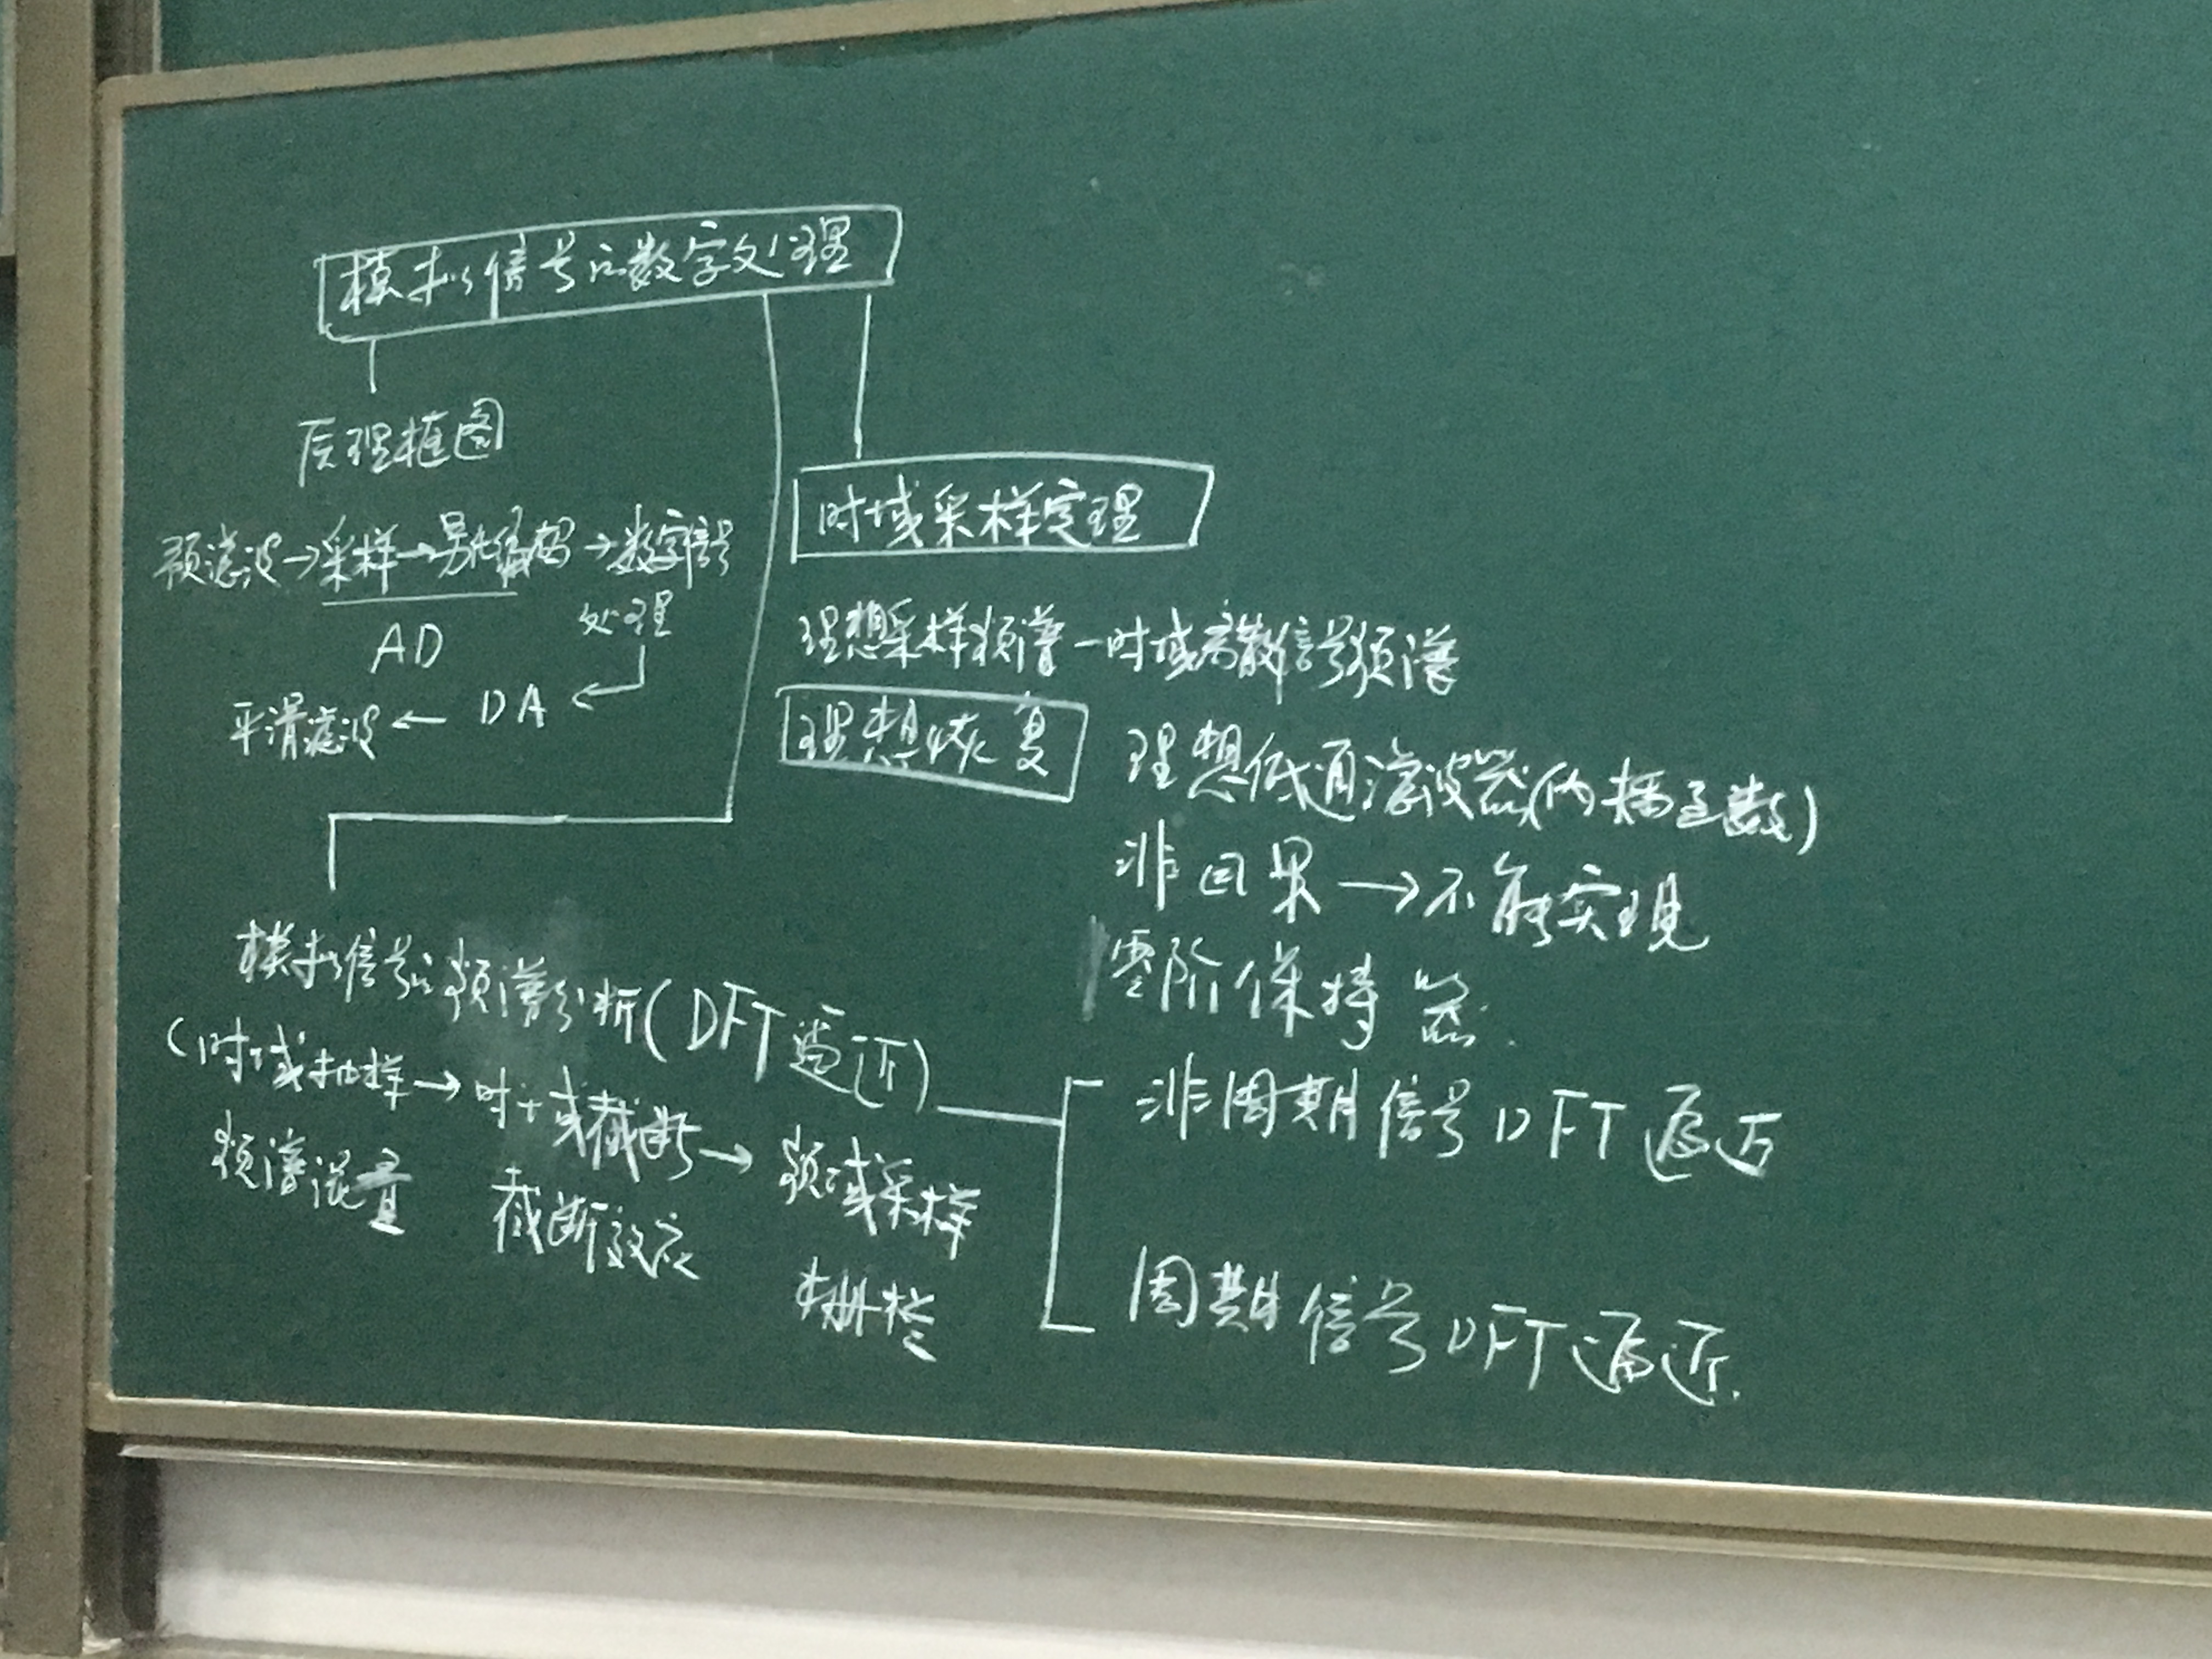 模拟信号的数字处理
原理框图
预滤波→采样→量化编码→数字信号
处理
AD
平滑滤波← DA ←
时域采样定理
理想采样频谱-时域离散信号频谱
理想恢复
理想低通滤波器(内插函数)
非因果→不能实现
零阶保持器.
模拟信号的频谱分析(DFT逼近)
(时域抽样→时域截断→频域采样
频谱混叠 截断效应 栅栏
非周期信号DFT逼近
周期信号DFT逼近.